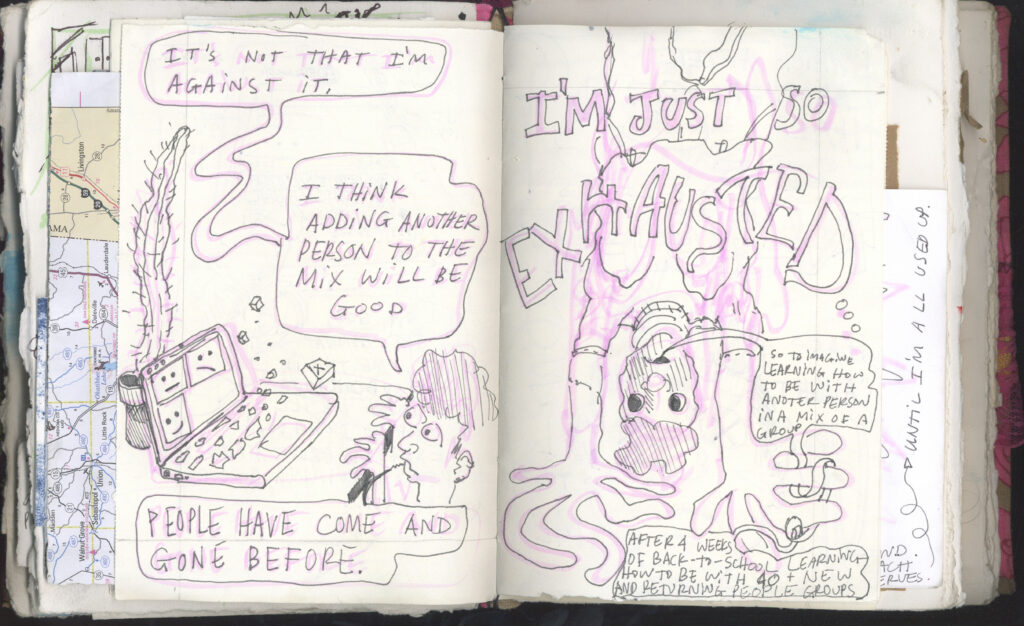 IT'S NOT THAT I'M
AGAINST IT.
I THINK
ADDING ANOTHER
PERSON TO THE
MIX WILL BE
GOOD
PEOPLE HAVE COME AND
GONE BEFORE.
Livingston
AMA
Lauderdale
Daleville
Little Rock
Union
Sebastopol
Walnut Grove
Madden
I'M JUST SO
EXHAUSTED
SO TO IMAGINE
LEARNING HOW
TO BE WITH
ANOTER PERSON
IN A MIX OF A
GROUP
AFTER 4 WEEKS
OF BACK-TO-SCHOOL LEARNING
HOW TO BE WITH 40 + NEW
AND RETURNING PEOPLE GROUPS
UNTIL I'M ALL USED UP.